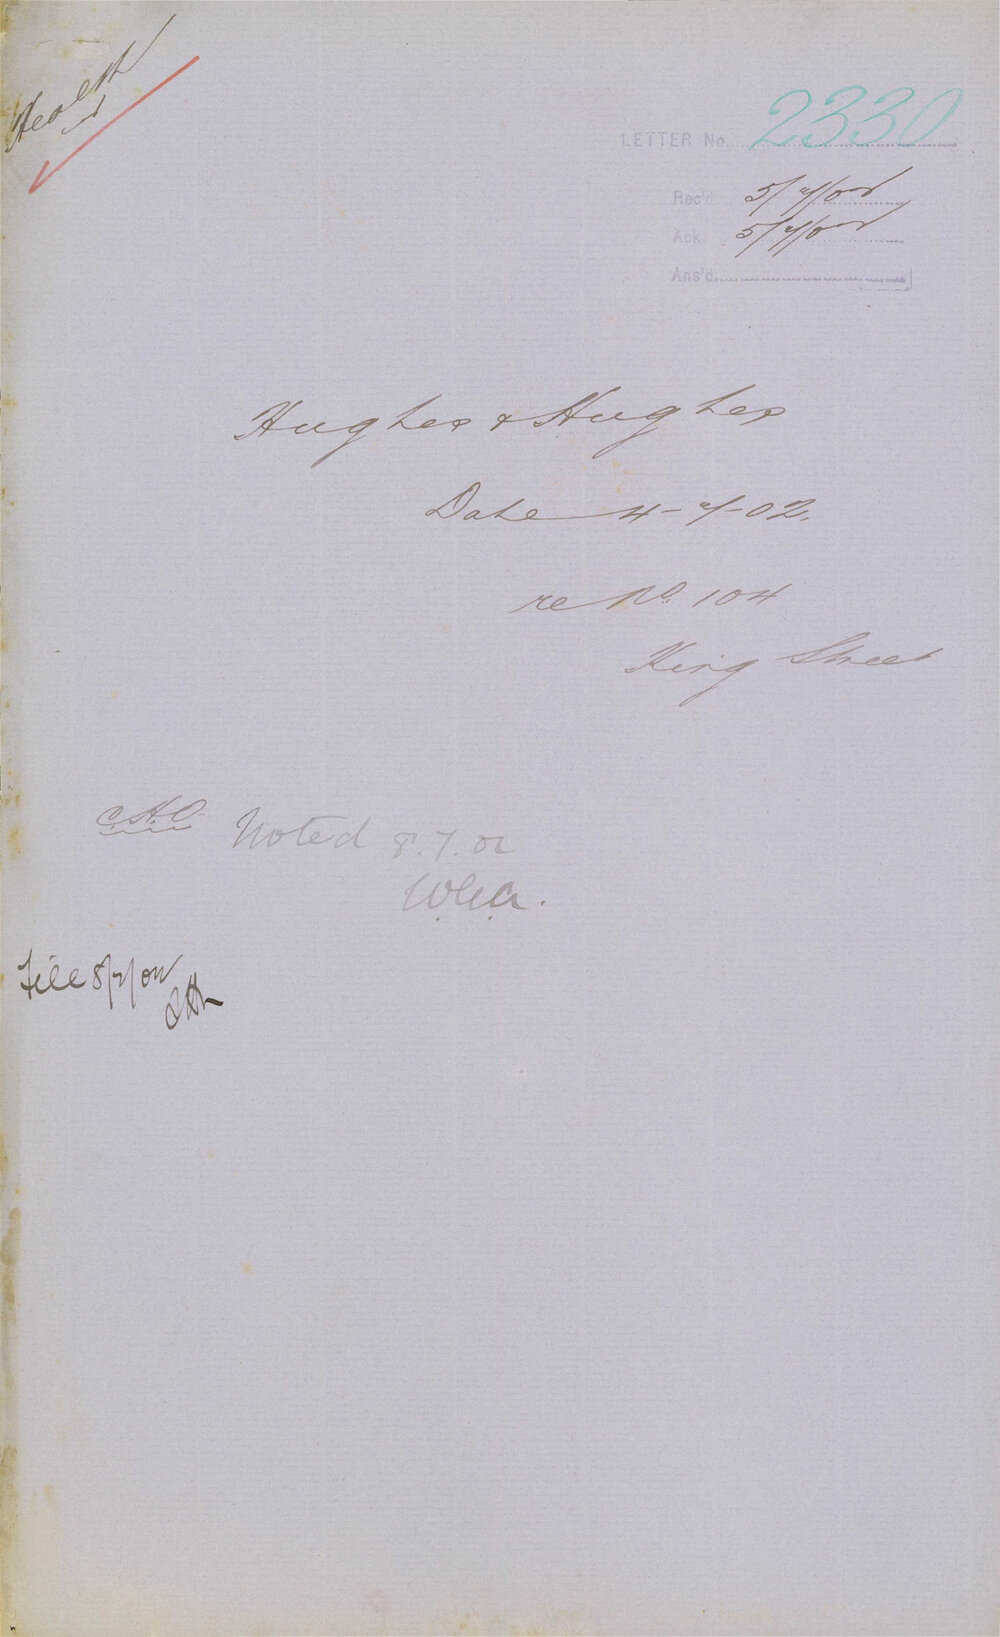 Health
LETTER No. 2330
Rec'd 5/7/02
Ack. 5/7/02
Ans'd
Hughes & Hughes
Date 4-7-02.
re No. 104
King Street
C.H.O. Noted 8.7.02
File 8/7/02